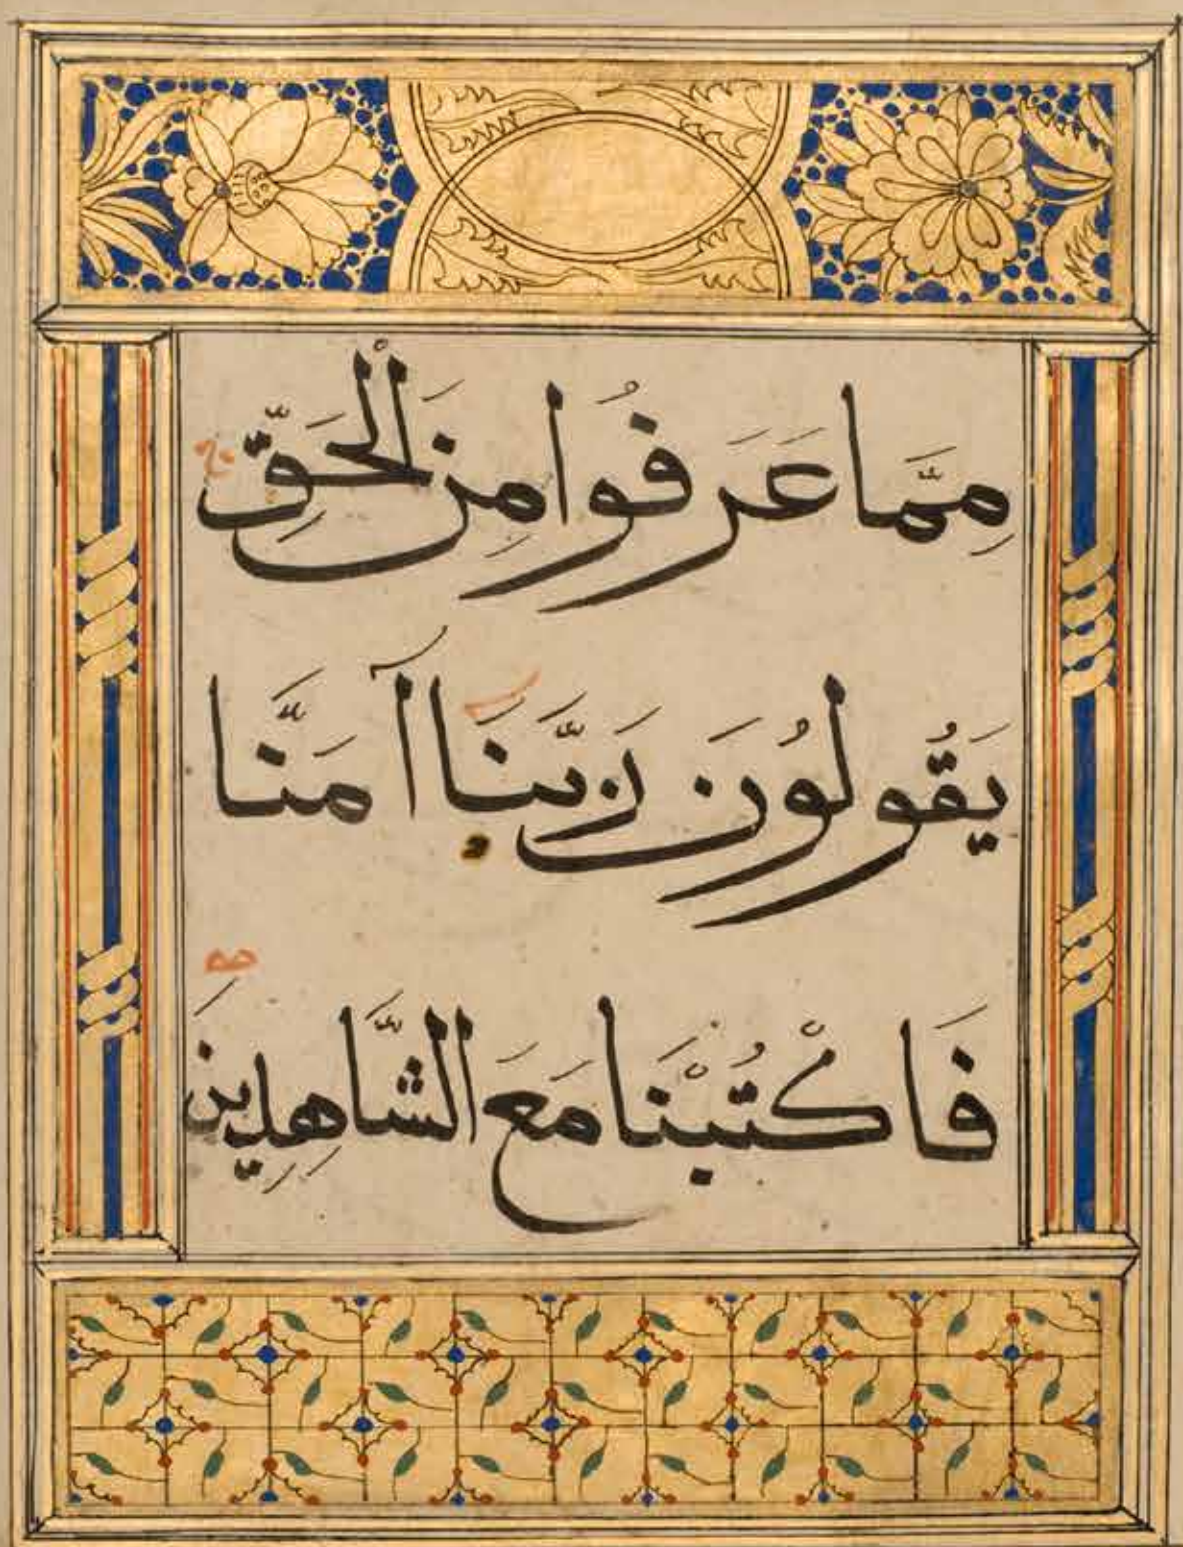 مِمَّا عَرَفُوا مِنَ الْحَقِّ
يَقُولُونَ رَبَّنَا آمَنَّا
فَاكْتُبْنَا مَعَ الشَّاهِدِينَ